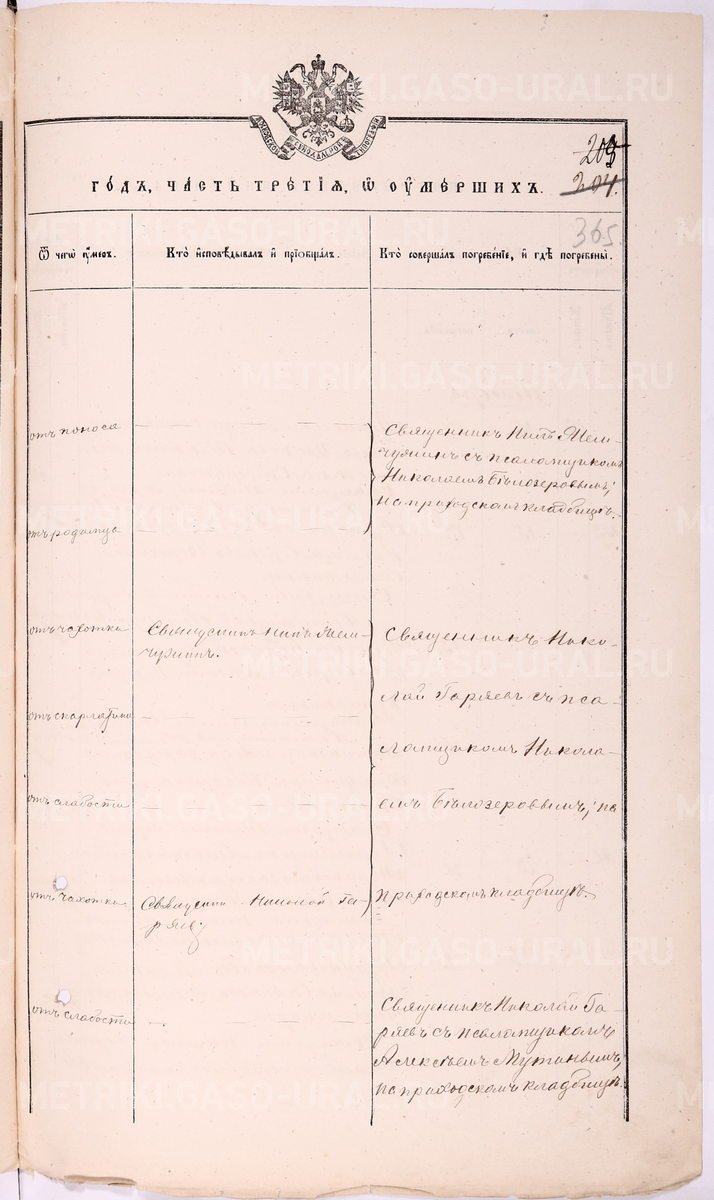 203
204.
ГО́ДЪ, ЧА́СТЬ ТРЕ́ТІЯ, Ѿ ОУ҆МЕ́РШИХЪ.
365.
Ѿ чегѡ̀ ᲂу҆́меръ.
Кто̀ и҆сповѣ́дывалъ и҆ прїѡбща́лъ.
Кто̀ соверша́лъ погребе́нїе, и҆ гдѣ̀ погребены̀.
отъ поноса
Священникъ Нилъ Жем-
чужинъ съ псаломщикомъ
Николаемъ Бѣлозеровымъ;
на приходскомъ кладбищѣ.
отъ родимца
отъ чахотки
Священникъ Нилъ Жем-
чужинъ.
Священникъ Нико-
лай Гаряевъ съ пса-
ломщикомъ Никола-
емъ Бѣлозеровымъ; на
приходскомъ кладбищѣ.
отъ скарлатины
отъ слабости
отъ чахотки
Священникъ Николай Га-
ряевъ
отъ слабости
Священникъ Николай Га-
ряевъ съ псаломщикомъ
Алексѣемъ
на приходскомъ кладбищѣ.
METRIKI.GASO-URAL.RU